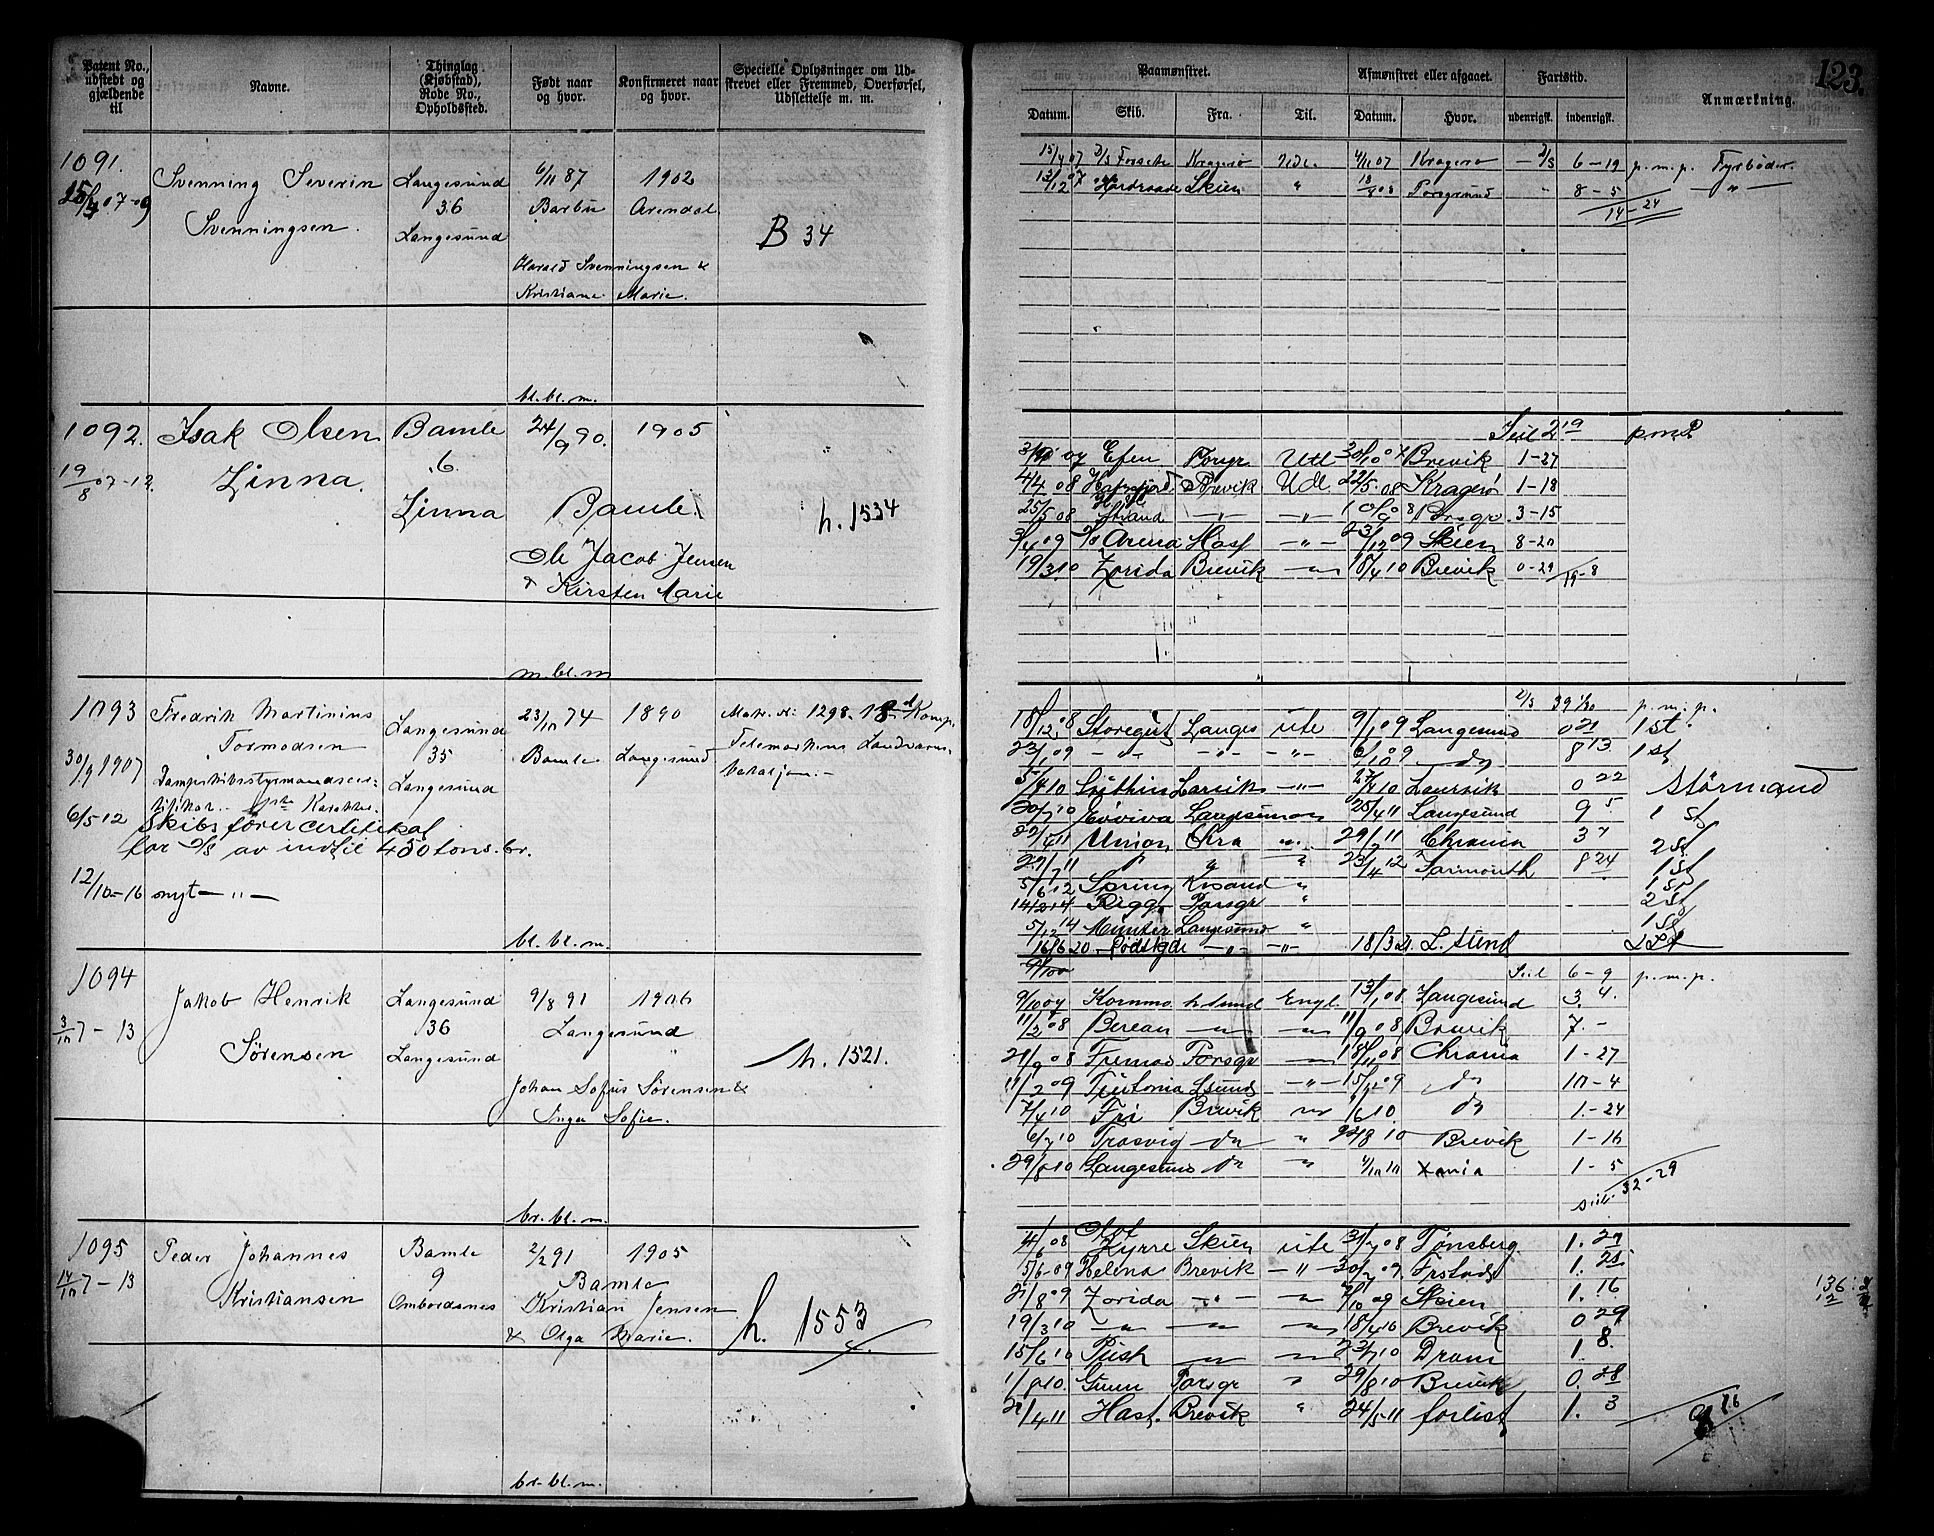 123.
Patent No., udstedt og gjældende til
Navne.
Thinglag (Kjøbstad), Rode No., Opholdssted.
Født naar og hvor.
Konfirmeret naar og hvor.
Specielle Oplysninger om Udskrevet eller Fremmed, Overførsel, Udslettelse m. m.
Paamønstret.
Afmønstret eller afgaaet.
Fartstid.
Anmærkning.
Datum. Skib. Fra. Til. Datum. Hvor. udenrigsk. indenrigsk.
1091. Svenning Severin Langesund 6/11 87 1902
07-09 Svenningsen. 36 Barbu Arendal
Langesund B 34
Harald Svenningsen &
Kristiane Marie.
bl. bl. m.
15/4 07 D/S Forseti Kragerø Udl. 4/11 07 Kragerø 6-19 p.m.p. Fyrbøder
13/12 07 Haardraade Skien " Porsgrund " 8-5 -"-
14-24
1092. Isak Olsen Bamle 24/9 90. 1905
19/8 07-12. Linna. 6.
Linna Bamle. h. 1534
Ole Jacob Jensen
& Kirsten Marie
m. bl. m
Seil 2 19 p.m.p
07 Efen Porsgr Utl 30/10 07 Brevik 1-27
4/4 08 Hafrsfjord Brevik Udl 22/5 08 Kragerø 1-18
25/5 08 Strand -"- -"- Porsgr. 3-15
3/4 09 Arena Hasf -"- 23/12 09 Skien 8-20
19/3 10 Zorida Brevik -"- 18/4 10 Brevik 0-29 19-8
1093 Fredrik Martinius Langesund 23/10 74 1890 Matr. N: 1298. 18 Komp.
Tormodsen 35 Bamle Langesund Telemarkens Landværns-
30/9 1907 Langesund bataljon.-
Dampskibsstyrmandscer-
6/5 12 Skibsførercertifikat
for D/S av indtil 450 tons. br.
12/10-16 nyt -"-
bl. bl. m.
D/S 39 1/30 p.m.p.
18/12 08 Storegut Langes ute 9/1 09 Langesund 0 21 1 st.
23/1 09 -"- -"- -"- 6/10 09 do 8 13 1 st
Larvik -"- 27/4 10 Laurvik 0 22 Stormand
30/7 10 Evviva Langesund 25/4 11 Langesund 9 5 1 st
22/4 11 Union Chra 29/7 11 Chrania 3 7 2 st
27/7 11 " " " 23/4 12 8 24 1 st
5/6 12 Spring Krsand " 1 st
14/12 14 Rigg. Porsgr " 2 st
5/12 14 Munter Langesund " 1 st
16/6 20 -"- -"- 18/3 21 L. sund
1094 Jakob Henrik Langesund 9/8 91 1906
3/10 7-13 36 Langesund
Sørensen Langesund h. 1521.
Johan Sofus Sørensen &
Inga Sofie.
br. bl. m.
Seil 6-9 p.m.p.
9/10 07 Kornmo L sund Engl. 13/1 08. Langesund 3. 4.
11/2 08 Berean -"- -"- 11/9 08 Brevik 7. -
21/9 08 Fremad Porsgr -"- 18/11 08 Chrania 1-27
11/2 09 Teutonia Lsund -"- do 10-4
7/4 10 Fri Brevik -"- do 1.-24
6/7 10 Trosvig do " Brevik 1-16
29/8 10 Langesund do -"- 4/10 10 Xania 1-5
seil. 32-29
1095 Peder Johannes Bamle 2/2 91 1905
14/10 7-13 9 Bamle
Kristiansen Ombordsnes Kristian Jensen h. 1553
& Olga Marie.
br. bl. m.
4/6 08 Kyrre Skien ute 31/7 08 Tønsberg. 1. 27
5/6-09 Helena Brevik -"- 30/7 09. Frstad 1. 25
21/8 09 Zorida -"- -"- Skien 1. 16
19/3 10 -"- -"- -"- 18/4 10 Brevik 0 29
15/6 10 Pusk -"- -"- 23/7 10 Dram 1. 8.
1/8 10. Gunn Porsgr " 29/8 10 Brevik 0. 28
21/4 11 Hasf. Brevik " 24/5 11 forlist 1. 3